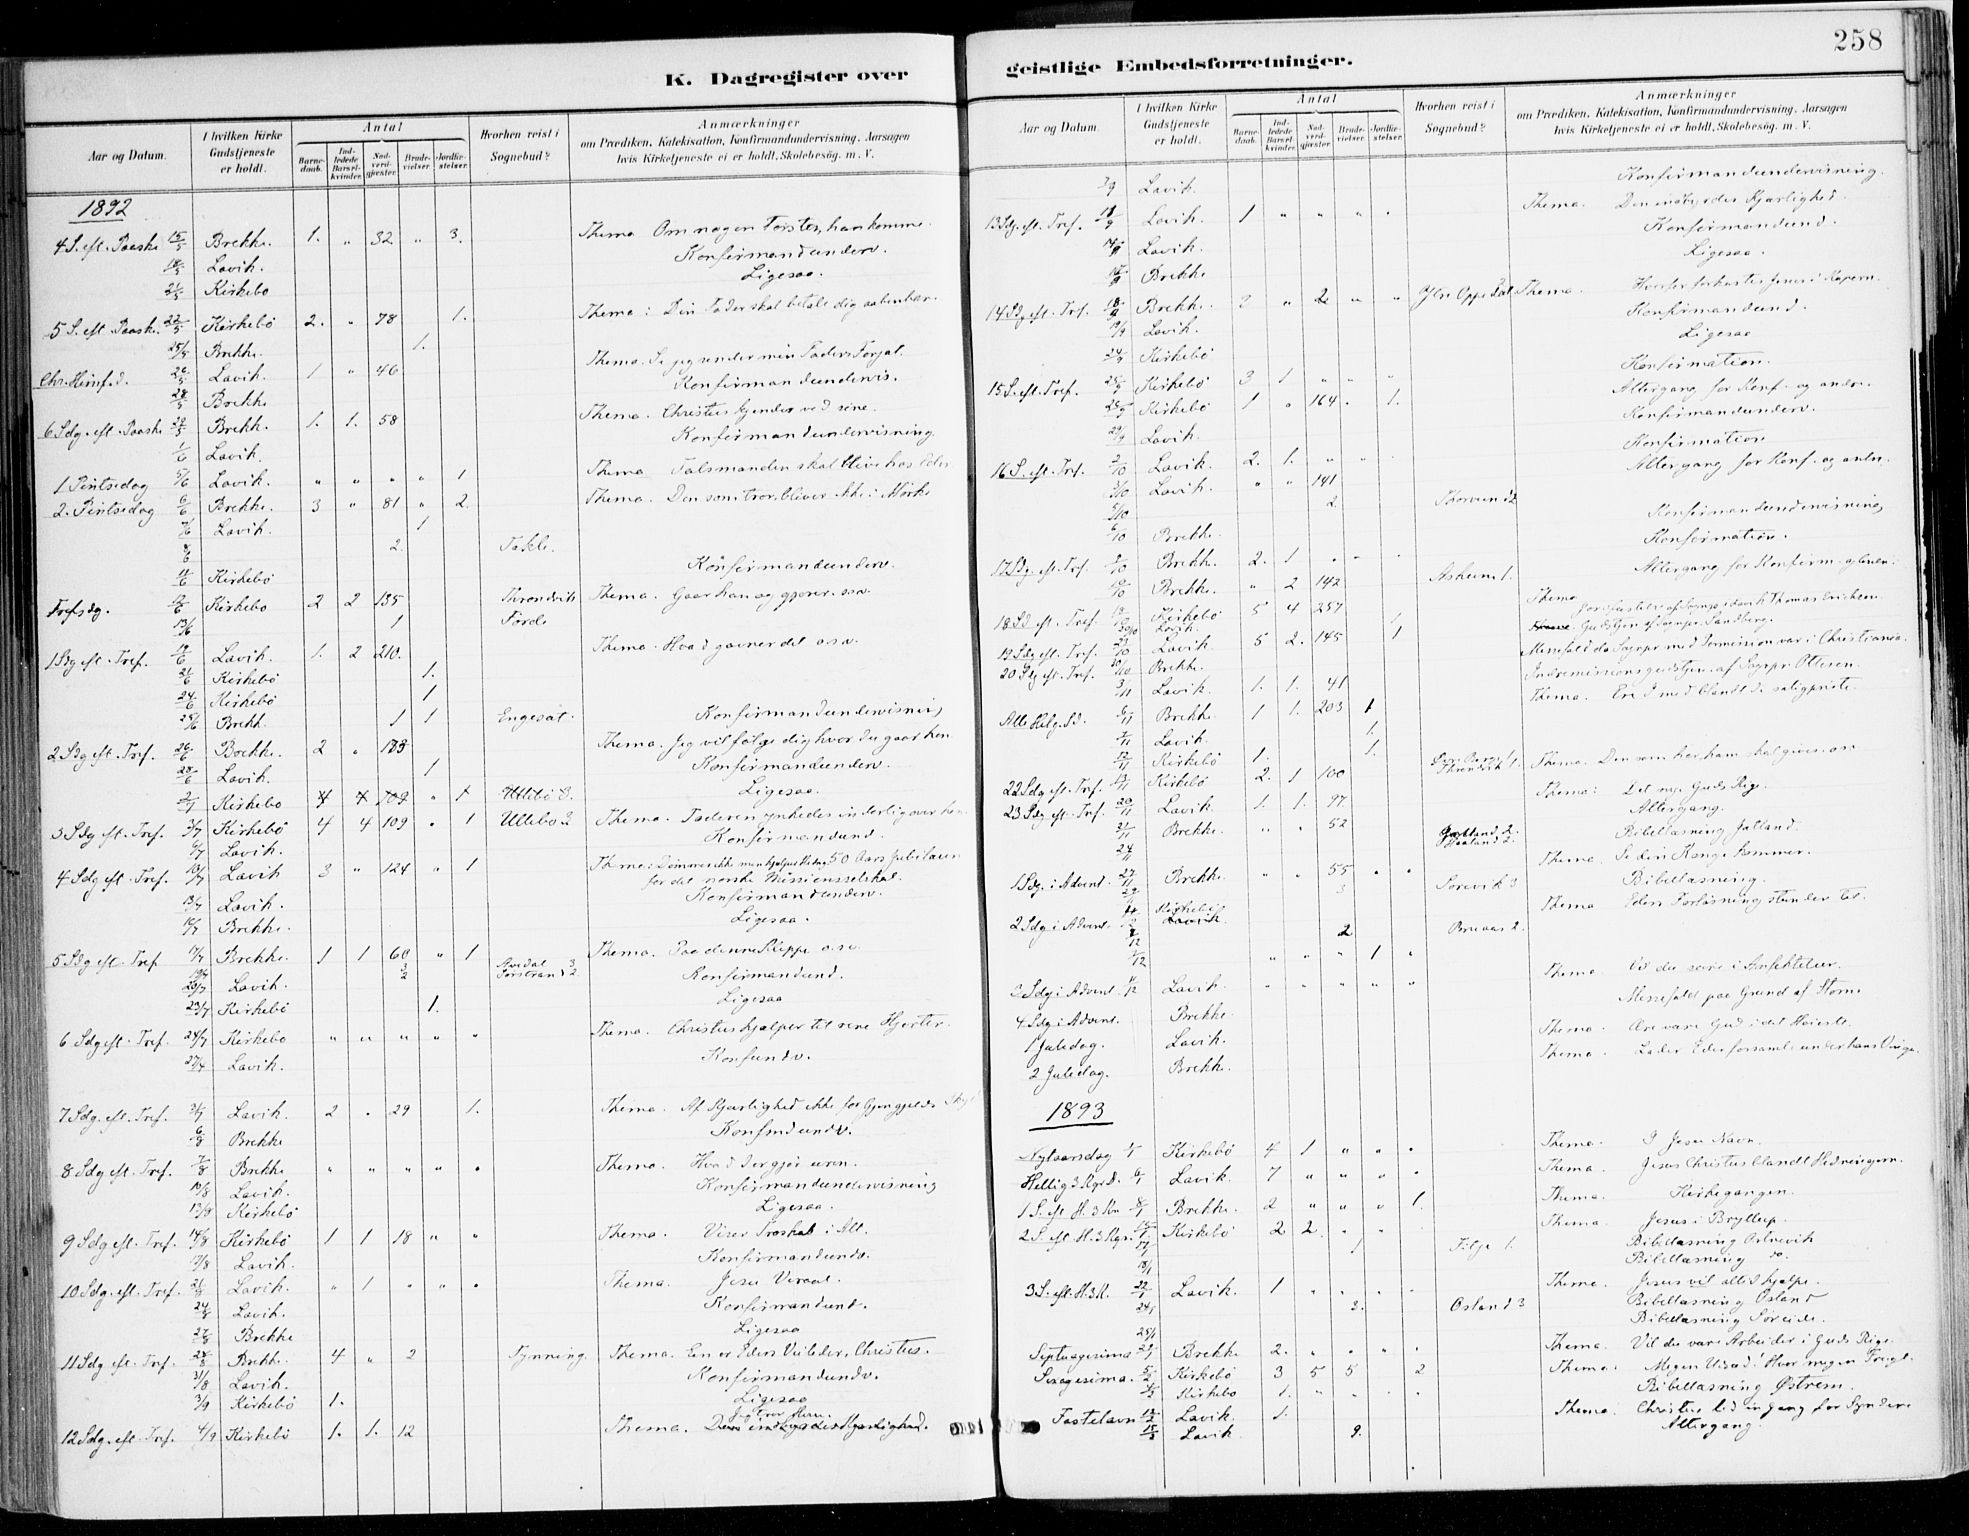 258
K. Dagregister over
geistlige Embedsforretninger.
Aar og Datum.
I hvilken Kirke Gudstjeneste er holdt.
Antal
Barne-daab.
Ind-ledede Barsel-kvinder.
Nad-verd-gjæster.
Brude-vielser.
Jordfæ-stelser.
Hvorhen reist i Sognebud?
Anmærkninger
om Prædiken, Katekisation, Konfirmandundervisning, Aarsagen
hvis Kirketjeneste ei er holdt, Skolebesög, m. V.
1892
4 S. eft. Paaske 15/5 Brekke. 1. " 32 " 3. Thema Om nogen Törster, han komme.
18/5 Lavik. Konfirmandunderv.
21/5 Kirkebö Ligesaa.
5 S. eft. Paaske. 22/5 Kirkebö 2. " 78 1. Thema: Din Fader skal betale dig aabenbar.
25/5 Brekke. 1.
Chr. Himf. d. 26/5 Lavik. 1 " 46 Thema. Se jeg sender min Faders Forjæt.
28/5 Brekke Konfirmandundervis.
6 Sdg. eft. Paaske 29/5 Brekk. 1. 1. 58 Thema. Christus kjendes ved sine.
1/6 Lavik. Konfirmandundervisning.
1 Pintsedag 5/6 Lavik. " " " " 1 Thema Talsmanden skal blive hos Eder
2. Pintsedag 6/6 Brekke. 3 " 81 " 2. Thema. Den som tror, bliver ikke i Mörke
7/6 Lavik. 1
8/6 2. Takle.
11/6 Kirkebö Konfirmandunderv.
Trefsdg. 12/6 Kirkebö 2 2 135 Throndvik Thema. Gaar han og gjorer. osv.
13/6 1 Förde
1 Sdg eft. Tref. 19/6 Lavik. 1. 2 210. Thema. Hvad gavner det osv.
21/6 Kirkebö 1.
24/6 Kirkebö 1
25/6 Brekk. 1 1 Engesæt. Konfirmandundervisning
2 Sdg eft. Tref. 26/6 Brekke. 2 " 183 Thema. Jeg vil fölge dig hvor du gaar hen
28/6 Lavik. 1 Konfirmandunderv.
2/7 Kirkebö 4 4 109 " 1 Ullebö 3. Ligesaa.
3 Sdg eft. Tref. 3/7 Kirkebö 4 4 109 " 1 Ullebö 3 Thema. Faderen ynkedes inderlig over ham
6/7 Lavik. Konfirmandund.
4 Sdg eft. Tref. 10/7 Lavik 3 " 124 " 1 Thema: Dömmer ikke men hjælper 50 Aars Jubilæum
for det norske Missionsselskab.
13/7 Lavik. Konfirmandunderv.
16/7 Brekke. Ligesaa.
5 Sdg eft. Tref 17/7 Brekke. 1 1 60 " 1 Thema. Paa denne Klippe osv.
19/7 3 Avedal 3
20/7 Lavik. 2 Torstrand 2 Konfirmandund.
23/7 Kirkebö 1. Ligesaa
6 Sdg eft. Tref. 24/7 Kirkebö " " " " " Thema. Christus hjælper til rene Hjerter.
27/7 Lavik. Konfundv.
7 Sdg. eft. Tref. 31/7 Lavik. 2 . 29 1. Thema. Af Kjærlighed ikke for Gjengjælds Skyld
6/8 Brekke Konfmdundv.
8 Sdg. eft. Tref. 7/8 Brekke " " " " " Thema. Hvad der gjör uren.
10/8 Lavik. Konfirmandundervisning
13/8 Kirkebö Ligesaa.
9 Sdg eft. Tref. 14/8 Kirkebö 1 1 18 " " Thema. Viser Troskab i Alt.
17/8 Lavik. Konfirmandundv.
10 Sdg. eft. Tref. 21/8 Lavik. " 1 " " " Thema. Jesu Veraab.
24/8 Lavik. Konfirmandund.
27/8 Brekke Ligesaa
11 Sdg eft. Tref. 28/8 Brekke. 4 " 2 Tynning. Thema. En er Eders Veileder, Christus.
31/8 Lavik. Konfirmandundv.
3/9 Kirkebö 1. Ligesaa
12 Sdg. eft. Tref. 4/9 Kirkebö 1. 1. 12 Thema. Jeg tror Herre. Den indbyrdes Kjærlighed.
Aar og Datum.
I hvilken Kirke Gudstjeneste er holdt.
Antal
Barne-daab.
Ind-ledede Barsel-kvinder.
Nad-verd-gjæster.
Brude-vielser.
Jordfæ-stelser.
Hvorhen reist i Sognebud?
Anmærkninger
om Prædiken, Katekisation, Konfirmandundervisning, Aarsagen
hvis Kirketjeneste ei er holdt, Skolebesög, m. V.
7/9 Lavik. Konfirmandundervisning.
13 Sdg. eft. Tref. 11/9 Lavik. 1 " " " " Thema. Den indbyrdes Kjærlighed.
14/9 Lavik. Konfirmandund.
17/9 Brekke Ligesaa.
14 Sdg eft. Tref. 18/9 Brekke. 2 " 2 " " Ytre Oppedal Thema. Hvorfor forkastes Jesus i Kapern.
19/9 Lavik. Konfirmandund.
24/9 Kirkebö Ligesaa
15 S. eft. Tref. 25/9 Kirkebö 3 1 " " " Konfirmation.
25/9 Kirkebö 1 " 164 . 1. Altergang for Konf. og andre.
29/9 Lavik. Konfirmandunderv.
16 S. eft. Tref. 2/10 Lavik. 2. 1. " " . Konfirmation
3/10 Lavik. " " 141 Altergang for Konf. og andre.
5/10 2. Thorsund 2
6/10 Brekke. Konfirmandundervisning
17 Sdg. eft. Tref. 9/10 Brekk. 2. 1 " . . Konfirmation.
10/10 Brekke. " 2 142 Askeim 1. Altergang for Konfirm. og andre.
18 Sd. eft. Tref. Kirkebö 5 4 257 1 Thema
Jordfæstelse af Sogneprest Thomas Erichsen
Lavik.
19 Sdg eft. Tref. 23/10 Lavik. 5 2. 145 1 Gudstjen. af Sogepr. Sandberg.
20 Sdg eft. Tref. 30/10 Brekke. Messefald da Sogpr. med Permission var i Christiania.
3/11 Lavik. 1. 1. 41 Indremissionsgudstjen. af Sogpr. Ottesen.
Alle Helg. Sd. 6/11 Brekke. 1 1. 203 1 Thema. Ere I med blandt de saligpriste.
7/11 Lavik. 1.
12/11 Kirkebö 1. 1.
22 Sdg. eft. Tref. 13/11 Kirkebö 2. 1 100 Throndvik 1. Thema. Den som har, ham skal gives osv
23 Sdg eft. Tref. 20/11 Lavik. 1. 1. 97 Thema: Det nye Guds Rige.
21/11 Brekke. " " 52 Altergang.
24/11 Jatland 2. Bibellæsning Jatland.
1 Sdg. i Advent 27/11 Brekke. " " 55 " " Thema. Se din Konge kommer.
29/11 3 Sörevik 3 Bibellæsning.
2 Sdg i Advent. 4/12 Kirkebö Lavik. Thema Eders Forlösning stunder til.
2 Bruaas 2.
/12 " " " 1 "
3 Sdg i Advent. 11/12 Lavik. " " " " " Thema. Vil du være i Anfektelser.
4 Sdg i Advent. Brekke. Messefald paa Grund af Storm.
1 Juledag. Lavik. Thema. Ære være Gud i det Höieste.
2 Juledag. Brekke. Thema. Lader Eder forsamle under hans Vinger.
1893
Nytaarsdag 1/1 Kirkebö 4 1 " " " Thema. I Jesu Navn.
Hellig 3 Kgrs D. 6/1 Lavik. 7 " " " Thema. Jesus Christus blandt Hedningerne.
1 S. eft H. 3 Kn 8/1 Brekke. 2 " " " 1. Thema. Kirkegangen.
2 S. eft H. 3 Kgr. 15/1 Kirkebö 2 2. " " . Thema. Jesus i Bryllup.
17/1 1 Fitje 1. Bibellæsning Ostrevik
18/1 Bibellæsning do.
3 S. eft. H. 3 K. 22/1 Lavik. 1 " " . . Thema. Jesus vil altid hjælpe.
24/1 2. Osland 3 Bibellæsning Osland
25/1 Bibellæsning Söreide.
Septuagesima 29/1 Brekke 2. " " " . Thema. Vil du være Arbeider i Guds Rige.
Sexagesima. 5/2 Kirkebö 3 5 5 2 Thema: Megen Udsæd! Hvor megen Frugt.
Kirkebö 1. " " . . Bibellæsning Østrem.
Fastelavn 12/2 Lavik. 1. Thema: Christi Lidingang for Syndere
Lavik. 9. Altergang.